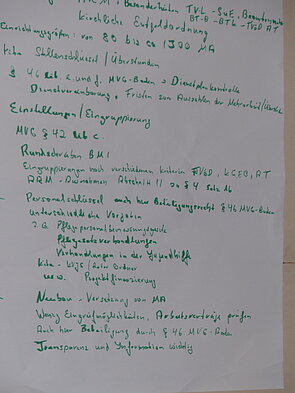 ARM, Besonderheiten TVL-SuE, Besonderheiten
BT-B - BTK - TVöD AT
kirchliche Entgeltordnung
Einrichtungsgrößen: von 80 bis ca 1300 MA
Kita Stellenschlüssel/Überstunden
§ 46 lit e und f MVG-Baden → Dienstplankontrolle
Dienstvereinbarung → Fristen zum Ausgleichen der Mehrarbeit/
Einstellungen/Eingruppierung
MVG § 42 lit c.
Rundschreiben BMI
Eingruppierungen nach verschiedenen Kriterien TVöD, AT
ARM - Ausnahmen Abschnitt II Nr § 4 Satz
Personalschlüssel auch hier Beteiligungsrecht § 46 MVG-Baden
unterschiedliche Vorgaben
z.B. Pflegepersonalbemessungsgesetz
Pflegesatzverhandlungen
Verhandlungen in der Jugendhilfe
Kita - KVJS / Ordner
usw. Projektfinanzierung
Neubau - Versetzung von MA
Wenig Eingriffmöglichkeiten, Arbeitsverträge prüfen
Auch hier Beteiligung durch § 46 MVG-Baden
Transparenz und Information wichtig